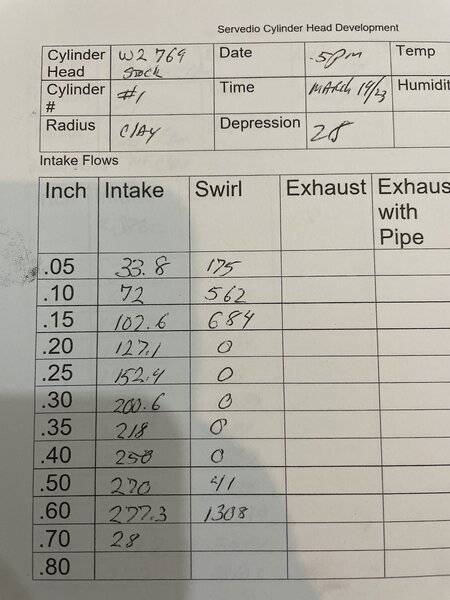 Servedio Cylinder Head Development
Cylinder Head W2 769 Stock Date .5pm Temp
Cylinder # #1 Time March 14/23 Humidit
Radius Clay Depression 28
Intake Flows
Inch Intake Swirl Exhaust Exhaus with Pipe
.05 33.8 175
.10 72 562
.15 102.6 684
.20 127.1 0
.25 152.4 0
.30 200.6 0
.35 218 0
.40 250 0
.50 270 41
.60 277.3 1308
.70 28
.80